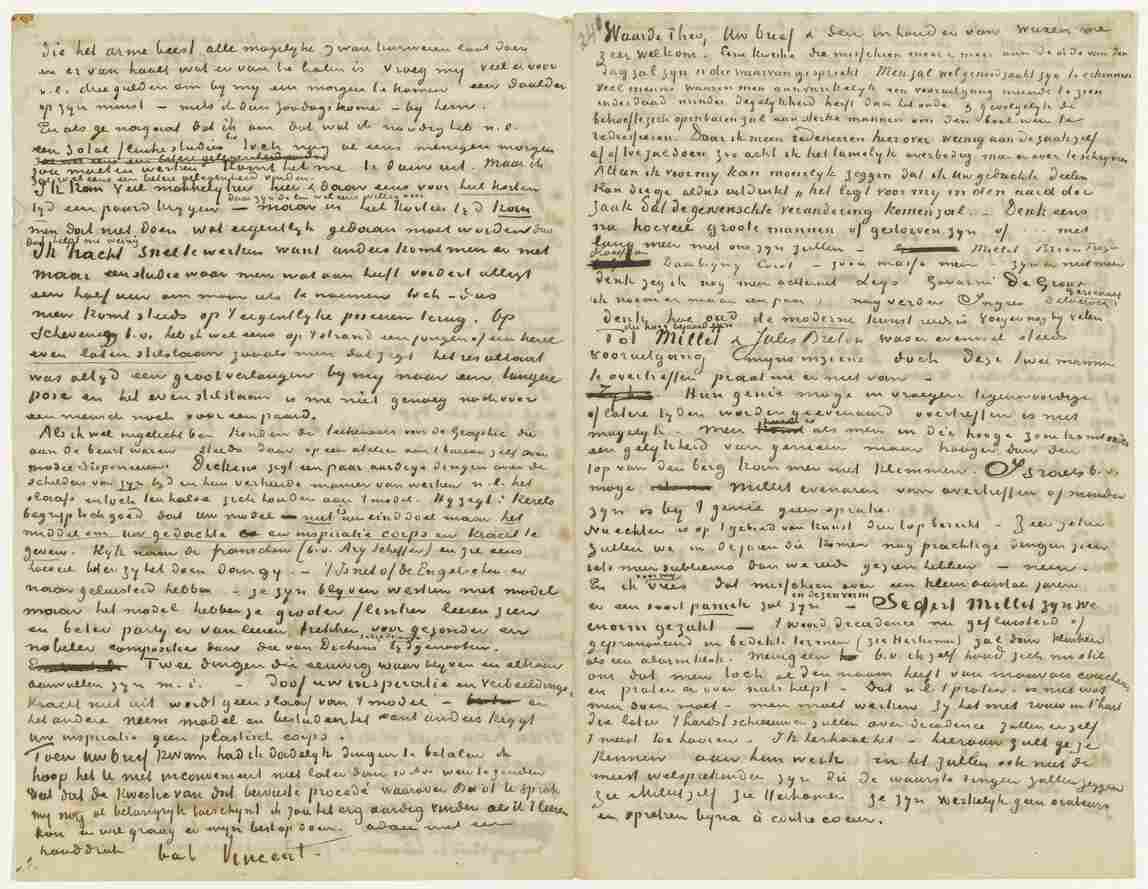 die het arme beest alle mogelyke zwenkingen laat doen
en er van haalt wat er van te halen is vroeg my veel er voor
n.l. drie gulden om by my een morgen te komen een daalder
op zyn minst – als ik dan zondags kome – by hem.
En als ge nagaat dat ik om dat wat ik noodig heb n.l.
een 30tal flinke studies toch nog al eens menigen morgen
zou moeten werken komt het me te duur uit. Maar ik
zal wel eens een betere gelegenheid vinden.
Ik kan veel makkelyker hier & daar eens voor heel korten
tyd een paard krygen daar zyn de lui wel eens gewillig voor – maar in het korte tyd kan
men dat niet doen wat eigentlyk gedaan moet worden dus
dat helpt me weinig
Ik tracht snel te werken want anders komt men er niet
maar een studie waar men wat aan heeft vordert allicht
een half uur om maar iets te noemen toch – dus
men komt steeds op 't eigentlyke poseeren terug. Op
Scheveningen b.v. heb ik wel eens op 't strand een jongen of een kerel
even laten stilstaan zooals men dat zegt het resultaat
was altyd een groot verlangen by my naar een langere
pose en het even stilstaan is me niet genoeg noch voor
een mensch noch voor een paard.
Als ik wel ingelicht ben konden de teekenaars voor de Graphic die
aan de beurt waren steeds daar op een atelier aan 't bureau zelf over
model disponeeren. Dickens zegt een paar aardige dingen over de
schilders van zyn tyd en hun verkeerde manier van werken n.l. het
slaafs en toch ten halve zich houden aan 't model. Hy zegt: Kerels
begryp toch goed dat uw model niet is uw einddoel maar het
middel om uw gedachte en inspiratie corps en kracht te
geven. Kyk naar de franschen (b.v. Ary Scheffer) en zie eens
hoeveel beter zy het doen dan gy. – 't Is net of de Engelschen er
naar geluisterd hebben – ze zyn blyven werken met model
maar het model hebben ze grooter/flinker leeren zien
en beter party er van leeren trekken voor gezonder en
nobeler composities dan die van Dickens schilders tydgenooten.
Twee dingen die eeuwig waar blyven en elkaar
aanvullen zyn m.i. – doof uw inspiratie en verbeeldings
kracht niet uit wordt geen slaaf van 't model – en
het andere neem model en bestudeer het want anders krygt
uw inspiratie geen plastisch corps.
Toen uw brief kwam had ik dadelyk dingen te betalen ik
hoop het U niet inconvenieert niet later dan 10 dez weer te zenden
Weet dat de kwestie van dat bewuste procedé waarover Buhot U sprak
my nog al belangryk toeschynt ik zou het erg aardig vinden als ik 't leeren
kon en wil graag er myn best op doen. adieu met een
handdruk b. à t. Vincent.
Waarde Theo, Uw brief & den inhoud er van waren me
zeer welkom. Eene kwestie die misschien meer & meer aan de orde van den
dag zal zyn is die waarvan ge spreekt Men zal wel genoodzaakt zyn te erkennen
veel nieuws waarin men aanvankelyk een vooruitgang meende te zien
inderdaad minder degelykheid heeft dan het oude & gevolgelyk de
behoefte zich openbaren zal aan sterke mannen om den boel weer te
redresseeren. Daar ik meen redeneeren hierover weinig aan de zaak zelf
af of toe zal doen zoo acht ik het tamelyk overbodig meer er over te schryven
Alleen ik voor my kan moeielyk zeggen dat ik Uw gedachte deelen
kan die ge aldus uitdrukt „het ligt voor my in den aard der
zaak dat de gewenschte verandering komen zal". – Denk eens
na hoeveel groote mannen of gestorven zyn of niet
lang meer met ons zyn zullen – Millet Brion Troyon
Rousseau Daubigny Corot – zoovele meer – zyn er niet meer
denk zeg ik nog men achteruit Leys Gavarni de Groux
ik noem er maar een paar, nog verder Ingres Delacroix Géricault
denk hoe oud de moderne kunst reeds is voeg er nog by velen
die hoog bejaard zyn
Tot Millet & Jules Breton was er evenwel steeds
vooruitgang myns inziens doch deze twee mannen
te overtreffen praat me er niet van –
Hun genie moge in vroeger tegenwoordige
of latere tyden worden geevenaard overtreffen is niet
mogelyk – Men als men in die hooge zone komt vindt
een gelykheid van genieen maar hooger dan den
top van den berg kan men niet klimmen. Israels b.v.
moge Millet evenaren van overtreffen of minder
zyn is by 't genie geen sprake.
Nu echter is op 't gebied van kunst den top bereikt – Zeer zeker
zullen we in de jaren die komen nog prachtige dingen zien
iets meer subliems dan we reeds gezien hebben – neen.
En ik voor my vrees dat misschien over een klein aantal jaren
er een soort paniek zal zyn in dezen vorm – Sedert Millet zyn we
enorm gezakt – 't woord decadence nu gefluisterd of
geprononceerd in bedekte termen (zie Herkomer) zal dan klinken
als een alarmklok. Menigeen b.v. ik zelf houd zich nu stil
om dat men toch al den naam heeft van mauvais coucheur
en praten er over niets helpt – Dat n.l. 't praten is niet wat
men doen moet – men moet werken zy het met rouw in 't hart
die later 't hardst schreeuwen zullen over decadence zullen er zelf
't meest toe hooren. Ik herhaal het – hieraan zult ge ze
kennen aan hun werk en het zullen ook niet de
meest welsprekenden zyn die de waarste dingen zullen zeggen
zie Millet zelf zie Herkomer ze zyn werkelyk geen orateurs
en spreken byna à contre coeur.